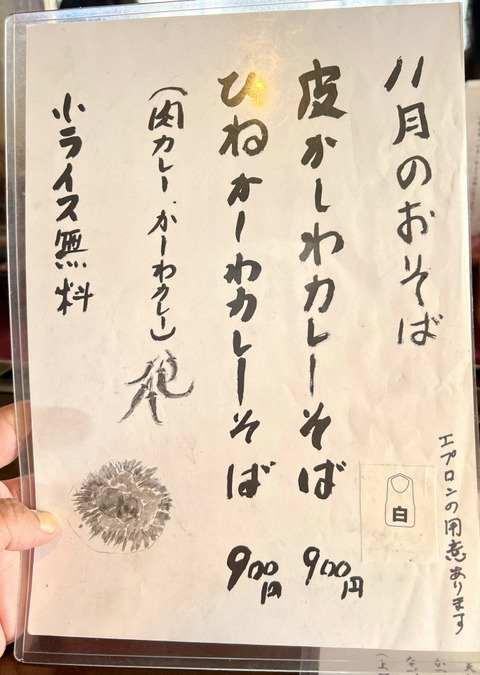 八月のおそば
皮かしわカレーそば 900円
ひねかしわカレーそば 900円
(肉カレー、かしわカレー)
小ライス無料
白
エプロンの用意あります